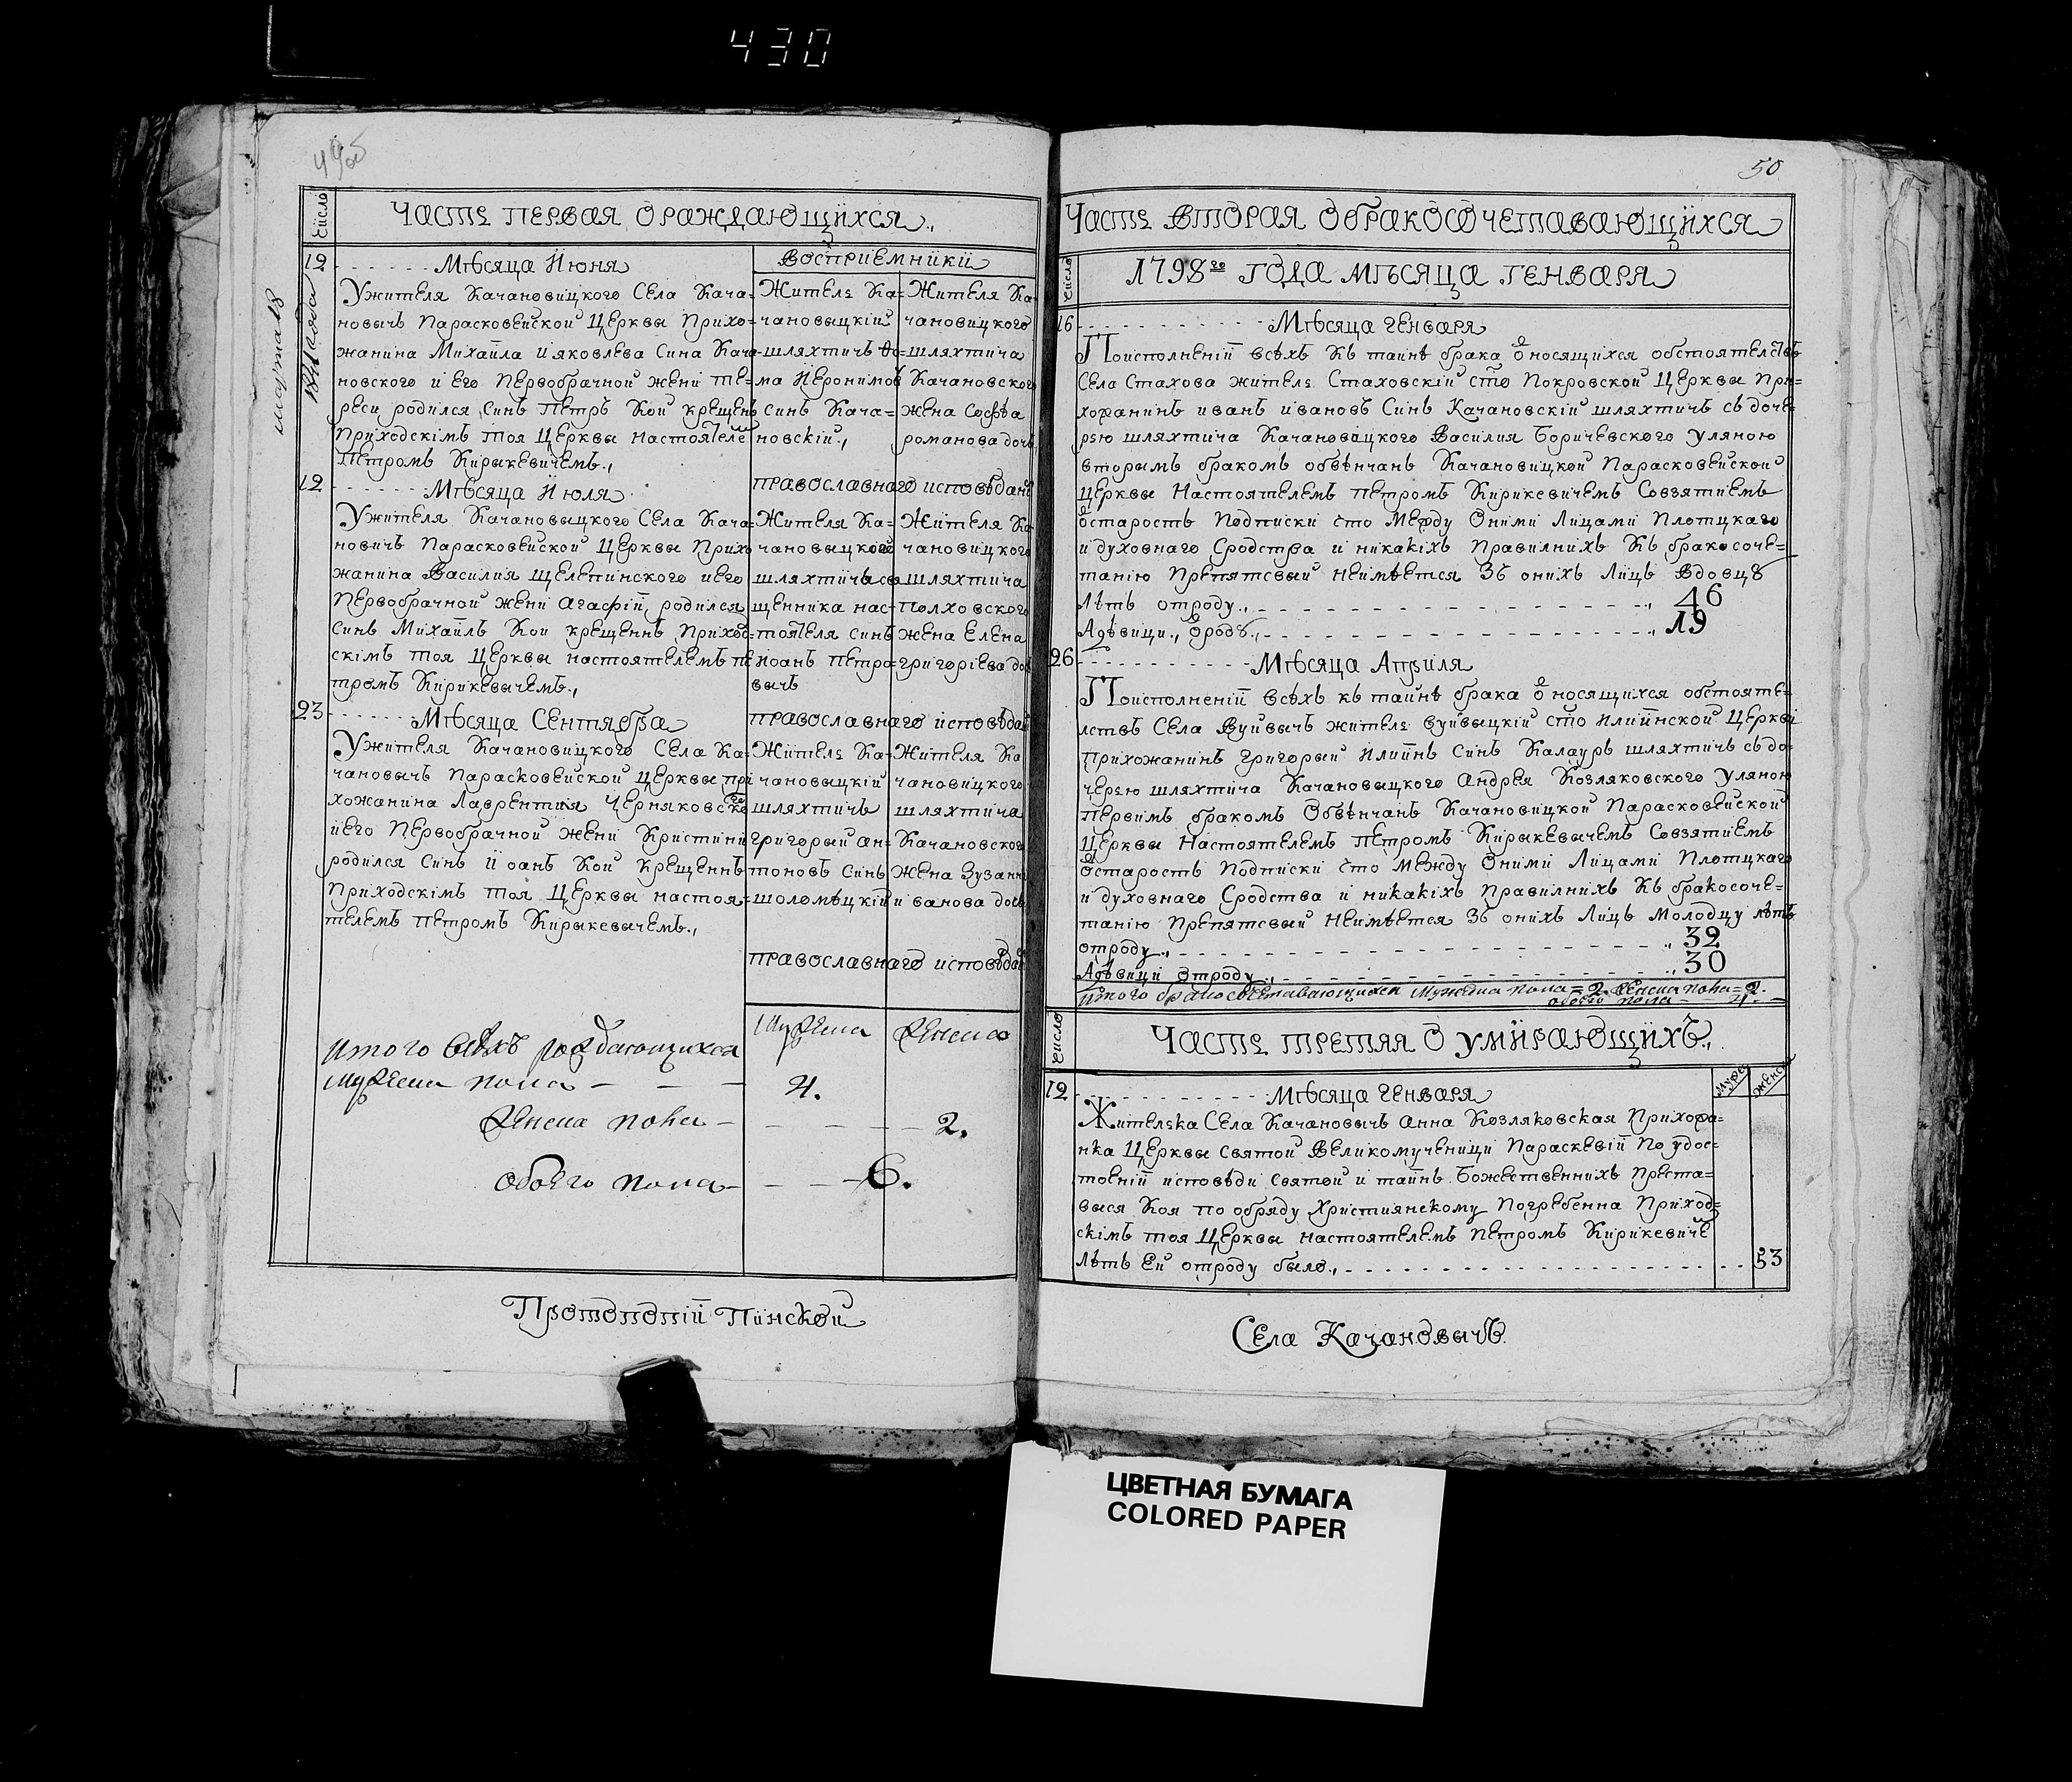 430
49об
Число
Часть первая о раждающихся.,
12
Мѣсяца Июня
Восприемники
У жителя Качановицкого Села Кача=
новычъ Парасковейской Церквы Прихо=
жанина Михайла Ияковлева Сина Кача=
новского и его Первобрачной жени Те=
реси родился Синъ Петръ Кой крещенъ
Приходскімъ тоя Церквы настоятеле
Петромъ Кирыкевичемъ.,
Жителъ Ка=
чановыцкий
шляхтичъ Ѳо=
ма Иеронимов
синъ Кача=
новскій.,
Жителя Ка
чановицкого
шляхтича
Качановского
жена Софѣа
романова дочь
православнаго исповѣдані
12
Мѣсяца Июля
У жителя Качановыцкого Села Кача=
новичъ Парасковейской Церквы Прихо
жанина Василия Щелепинского и его
Первобрачной жени Агафіи, родился
синъ Михайлъ Кои крещеннъ Приход=
скімъ тоя Церквы настоятелемъ Пе
тромъ Кирикевычемъ.,
Жителя Ка=
чановыцкого
шляхтича св
щенника нас=
тоятеля синъ
Иоанъ Петро=
вычъ
Жителя Ка
чановицкого
шляхтича
Полховского
жена Елена
григоріева до
православнаго исповѣдан
23
Мѣсяца Сентября
У жителя Качановицкого Села Ка=
чановычъ Парасковейской Церквы при
хожанина Лаврентия Черняковско
и его Первобрачной жени Кристини
родился Синъ Иоанъ Кой Крещеннъ
Приходскімъ тоя Церквы настоя=
телемъ Петромъ Кирыкевычемъ.,
Жителъ Ка=
чановыцкий
шляхтичъ
григорый ан=
тоновъ Синъ
шоломѣцкій
Жителя Ка
чановицкого
шляхтича
Качановского
жена Зузанн
иванова дочь
православнаго исповѣдан
Итого всѣхъ рождающихся
Мужеска
Женска
Мужеска пола — — — 4.
Женска пола — — — — 2.
обоего пола — — — 6.
Протопопіи Пинской
50
Часть вторая о бракосочетавающихся
Число
1798го года мѣсяца генваря
16
Мѣсяца генваря
По исполненій всѣхъ къ тайнѣ брака относящихся обстоятелствъ
Села Стахова жителъ Стаховскій сто Покровской Церквы При=
хожанинъ иванъ ивановъ Синъ Качановскій шляхтичъ съ доче=
рью шляхтича Качановицкого Василия Боричевского уляною
вторымъ бракомъ обвѣнчанъ Качановицкой Парасковейской
Церквы Настоятелемъ Петромъ Кирикевичемъ Совзятиемъ
от старость Подписки что Между Оними Лицами Плотцкаго
и духовнаго Сродства и никакіхъ Правилнихъ Къ бракосоче=
танію Препятсвый неимѣется Зъ онихъ Лицъ Вдовцу
лѣтъ отроду., 46
А дѣвици., 19
26
Мѣсяца Априля
По исполненій всѣхъ къ тайнѣ брака относящихся обстояте=
лствъ Села Вуйвычъ жителъ вуйвыцкій сто Илиинской Церкви
Прихожанинъ григорый Илиинъ Синъ Калауръ шляхтичъ съ до=
черью шляхтича Качановыцкого Андрея Козляковского уляною
первимъ бракомъ Обвѣнчанъ Качановицкой Парасковейской
Церквы Настоятелемъ Петромъ Кирыкевычемъ Совзятиемъ
от старость Подписки что Между Оними Лицами Плотцкаго
и духовнаго Сродства и никакіхъ Правилнихъ Къ бракосоче=
танію Препятсвый Неимѣется Зъ онихъ Лицъ Молодцу лѣтъ
отроду., 32
А дѣвици отроду., 30
Итого бракосочетавающихся Мужеска пола = 2. Женска пола = 2.
обоего пола — 4. —
Число
Часть третяя о умирающихъ.,
муже
женс
12
Мѣсяца генваря
Жителька Села Качановычъ анна Козляковская Прихожа=
нка Церквы святой Великомученици Параскевій По удос=
тоеній исповѣди святой и тайнъ Божественнихъ Преста=
выся Коя по обряду Християнскому Погребенна Приход=
скімъ тоя Церквы настоятелемъ Петромъ Кирикевиче
Лѣтъ Ей отроду было., 53
Села Качановычъ.
ЦВЕТНАЯ БУМАГА
COLORED PAPER